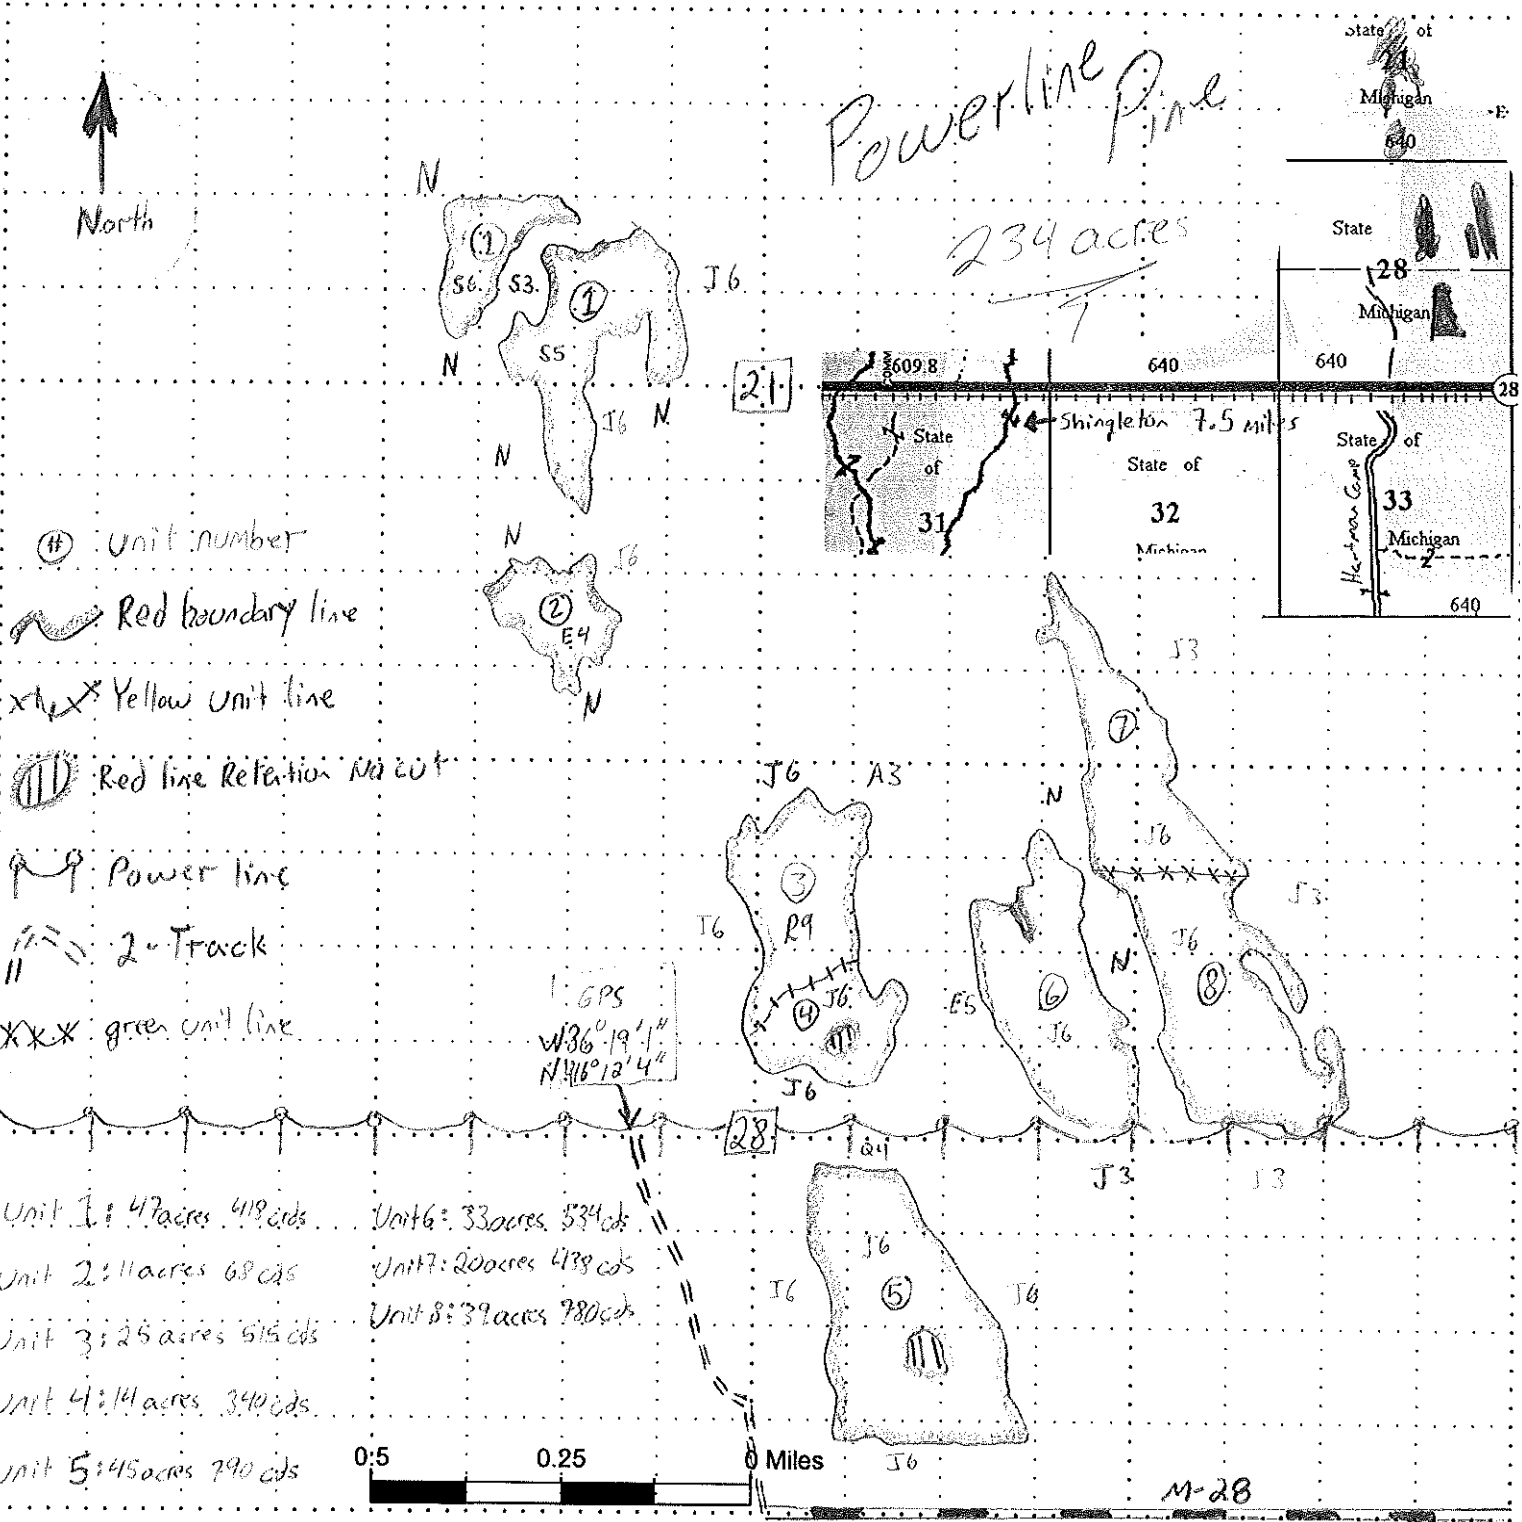 Powerline Pine
234 acres
North
State of
21
Michigan
640
-E-
State
28
Michigan
COMM
609.8
640
640
28
Shingleton 7.5 miles
State
of
31
State of
32
Michigan
State of
33
Michigan
2
Hartman Camp
640
N
1
S6
S3
1
S5
J6
N
J6
N
N
21
# Unit number
Red boundary line
Yellow Unit line
Red line Retention No cut
Power line
2-Track
green unit line
N
J6
2
E4
N
J3
7
J6
A3
N
J6
3
R9
J6
J3
J6
N
4
J6
E5
6
J6
8
J6
GPS
W 86° 19' 1"
N 46° 12' 4"
28
Q4
J3
J3
Unit 1: 47 acres 418 cds
Unit 2: 11 acres 68 cds
Unit 3: 25 acres 515 cds
Unit 4: 14 acres 340 cds
Unit 5: 45 acres 790 cds
Unit 6: 33 acres 534 cds
Unit 7: 20 acres 438 cds
Unit 8: 39 acres 780 cds
J6
J6
5
J6
J6
0.5 0.25 0 Miles
M-28